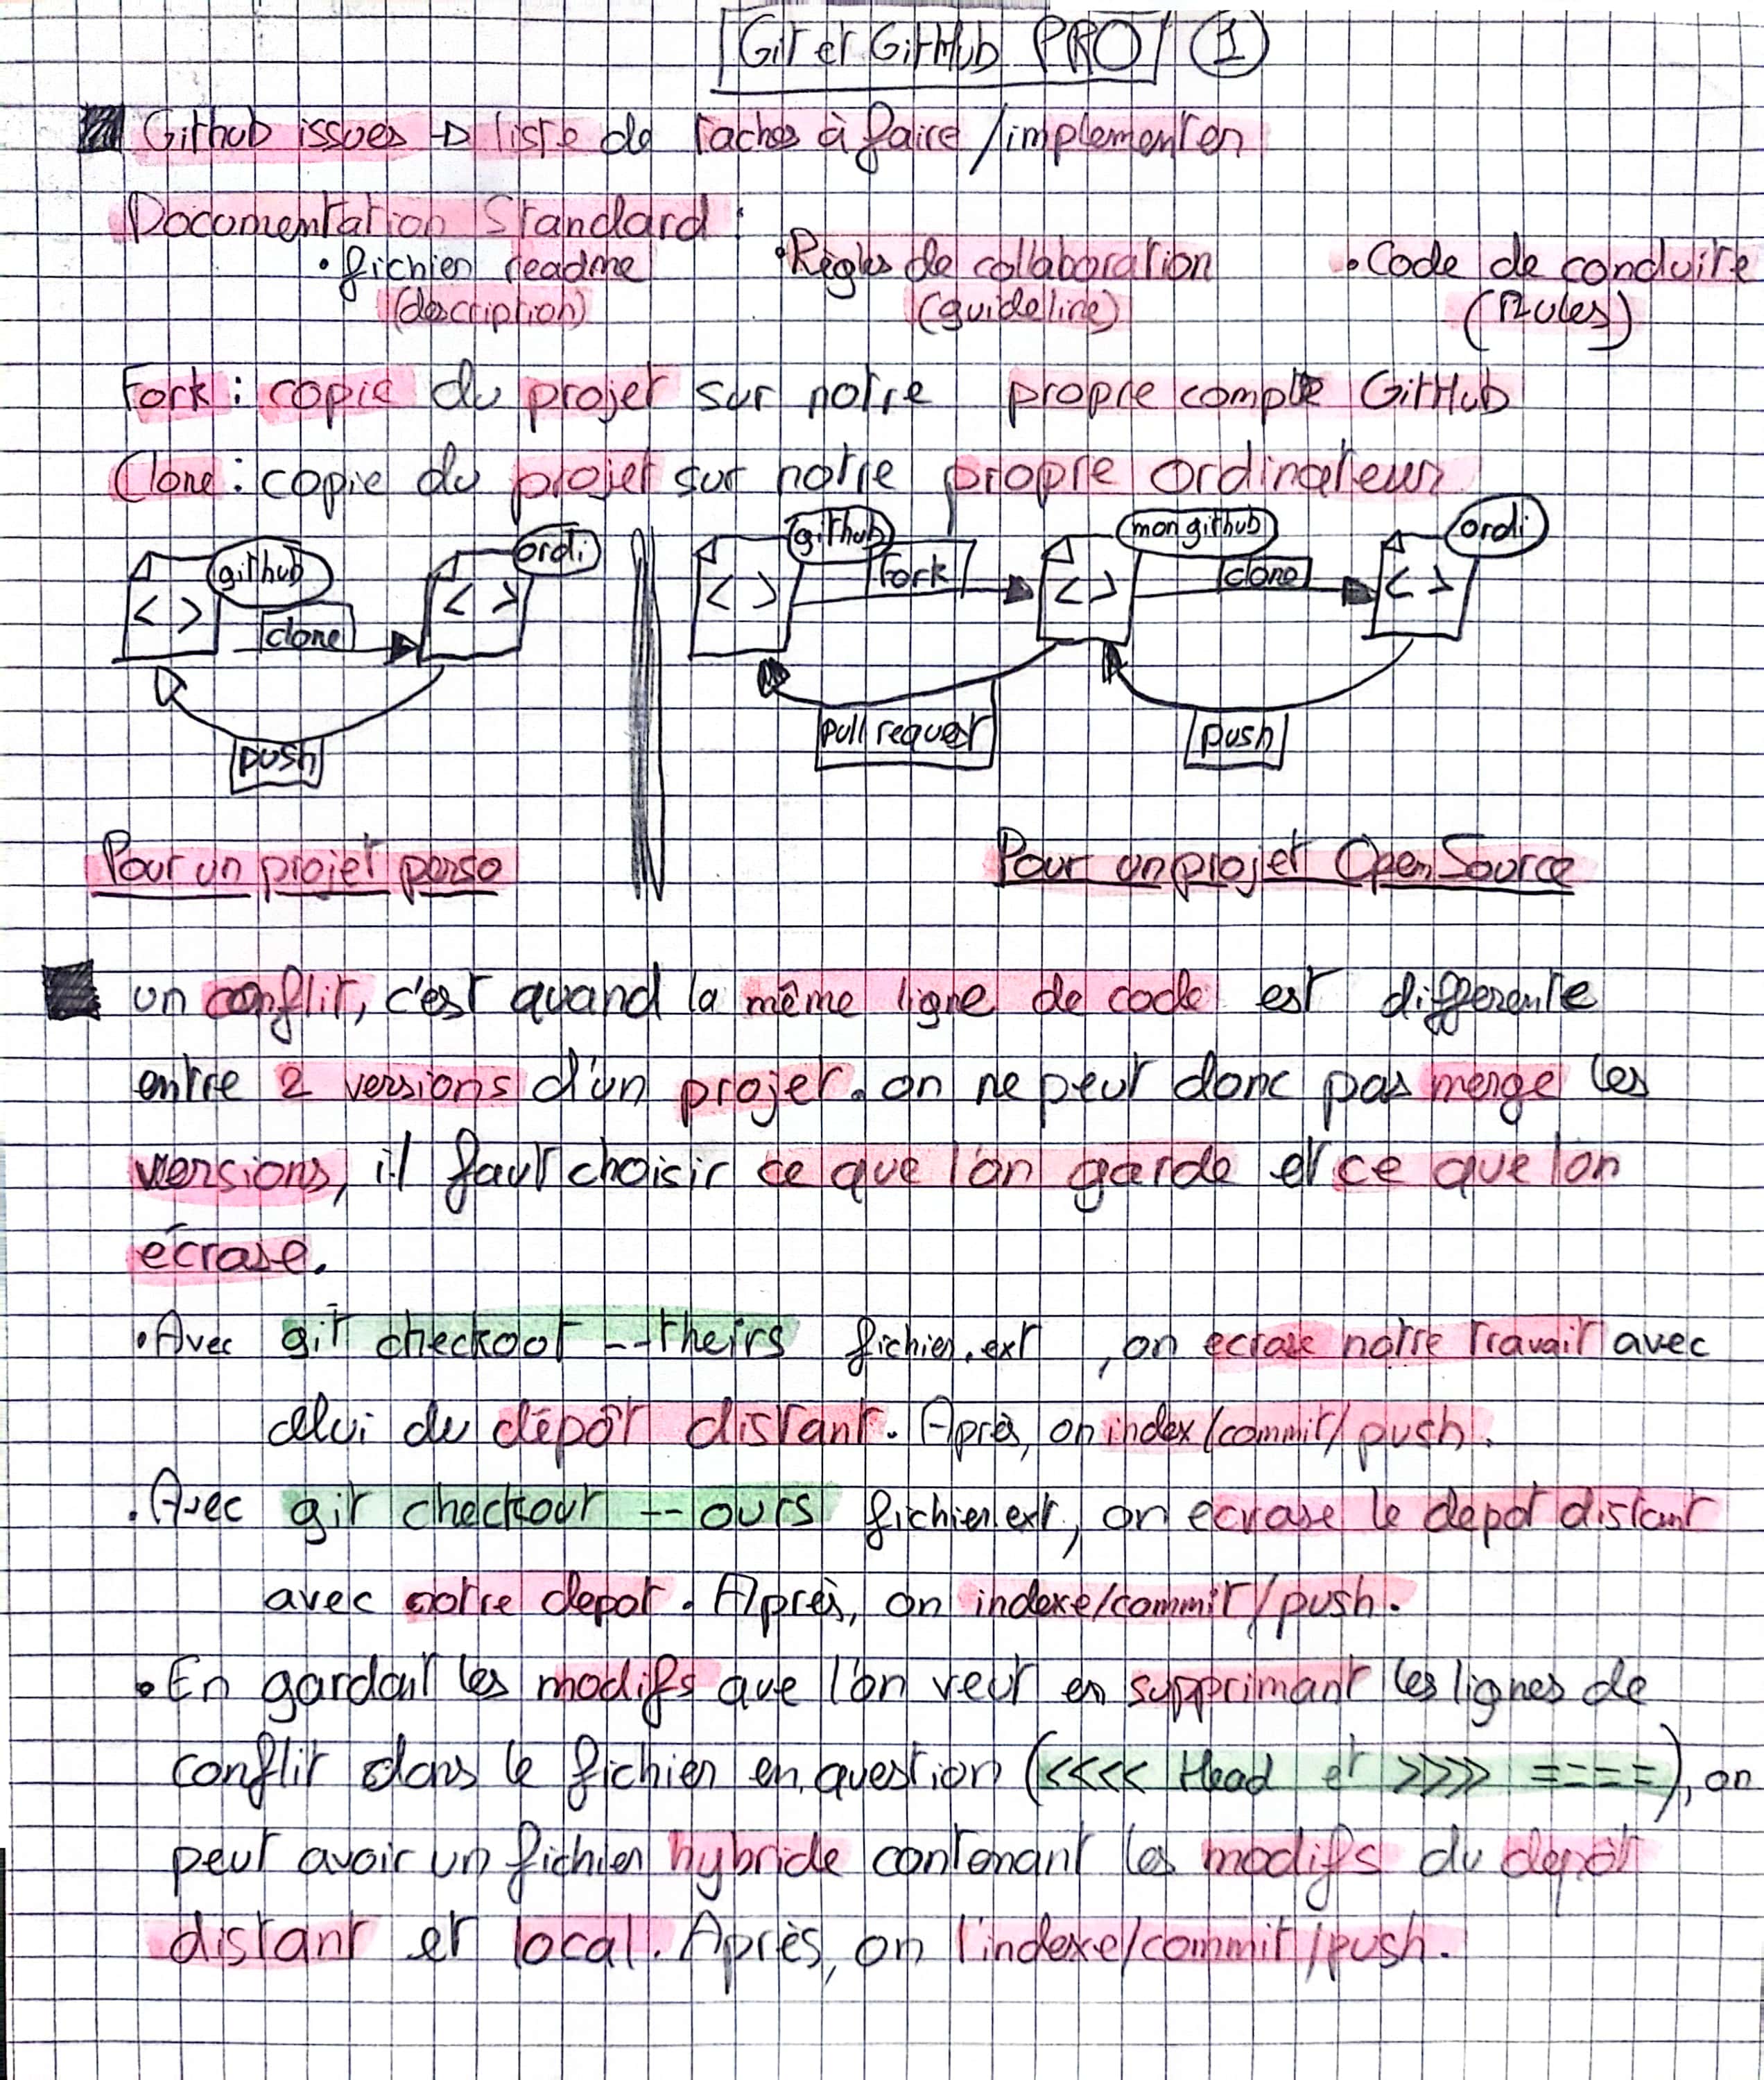 Git et GitHub PRO 1
Github issues → liste de taches à faire/implementer
Documentation Standard :
• fichier readme • Règles de collaboration • Code de conduite
(description) (guideline) (Rules)
Fork : copie du projet sur notre propre compte GitHub
Clone : copie du projet sur notre propre ordinateur
github ordi github mon github ordi
< > < > < > < > < >
clone fork clone
push pull request push
Pour un projet perso Pour un projet OpenSource
un conflit, c'est quand la même ligne de code est differente
entre 2 versions d'un projet. on ne peut donc pas merge les
versions, il faut choisir ce que l'on garde et ce que l'on
écrase.
• Avec git checkout --theirs fichier.ext, on ecrase notre travail avec
celui du dépôt distant. Après, on index/commit/push.
• Avec git checkout --ours fichier.ext, on ecrase le depot distant
avec notre depot. Après, on indexe/commit/push.
• En gardant les modifs que l'on veut en supprimant les lignes de
conflit dans le fichier en question (<<<< Head et >>>> ====), on
peut avoir un fichier hybride contenant les modifs du depôt
distant et local. Après, on l'indexe/commit/push.